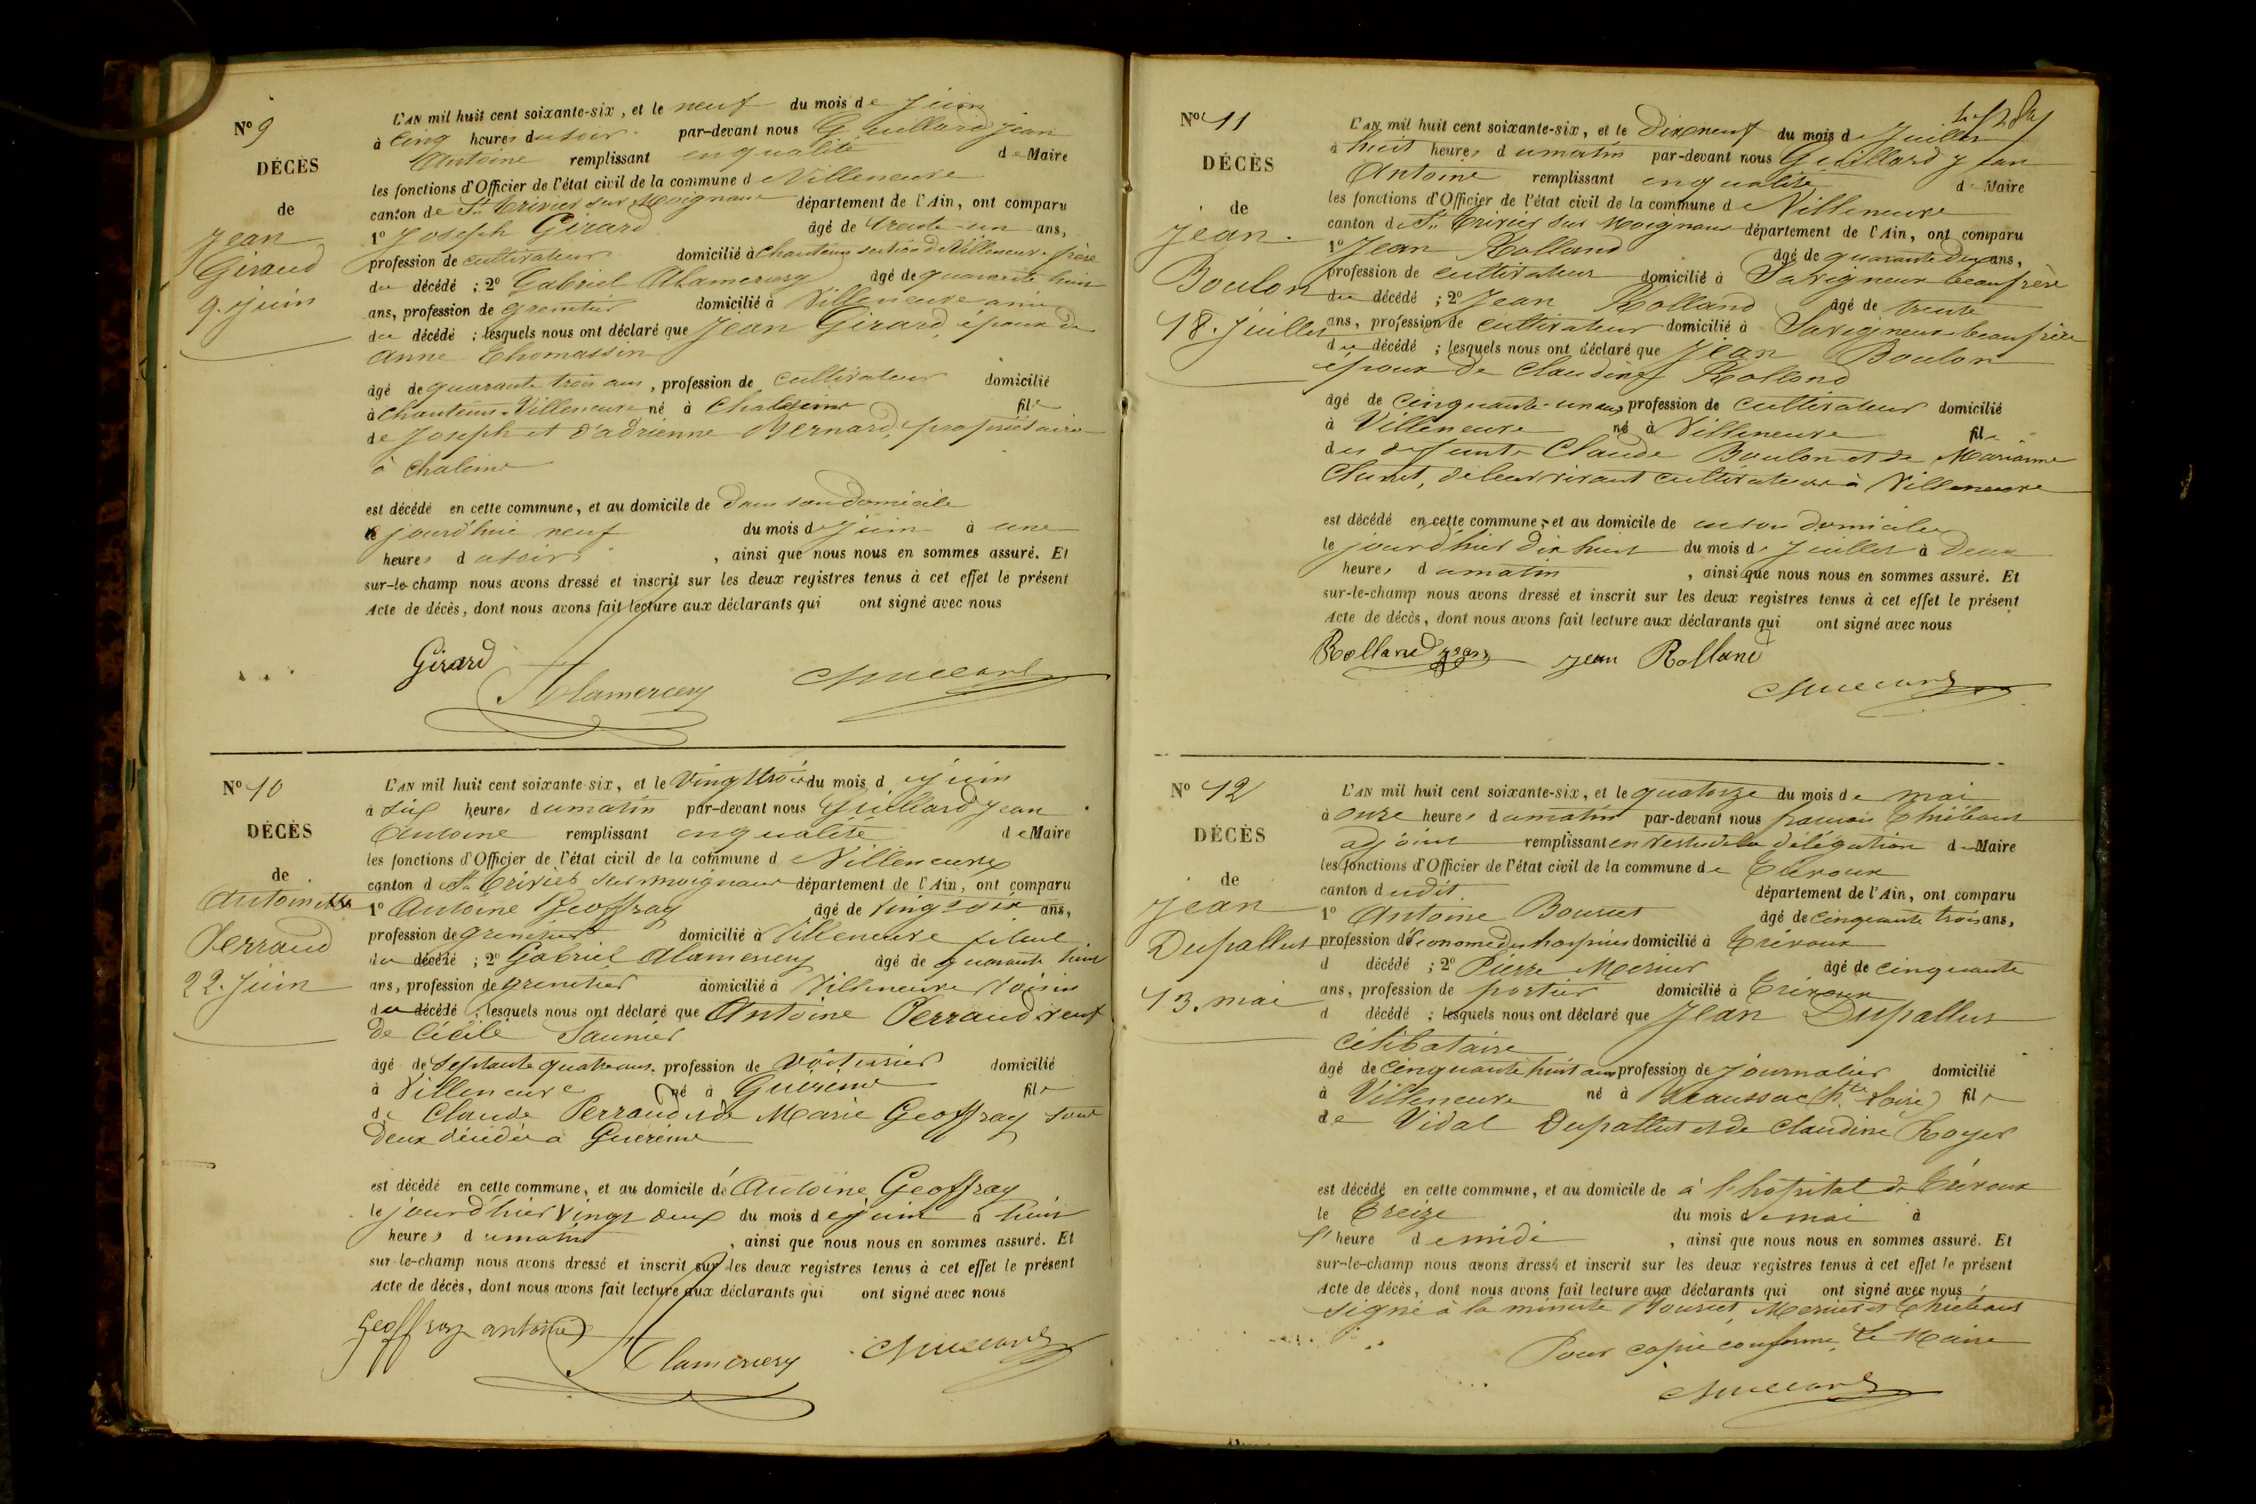 Nº 9
DÉCÈS
de
Jean
Giraud
9. juin
L'AN mil huit cent soixante-six, et le neuf du mois de Juin
à cinq heures du soir par-devant nous Guillard Jean
Antoine remplissant en qualité de Maire
les fonctions d'Officier de l'état civil de la commune de Villeneuve
canton de St Trivier sur Moignans département de l'Ain, ont comparu
1º Joseph Girard âgé de trente-un ans,
profession de cultivateur domicilié à Chanteins section de Villeneuve frère
du décédé ; 2º Gabriel Alamercery âgé de quarante huit
ans, profession de grenetier domicilié à Villeneuve ami
du décédé ; lesquels nous ont déclaré que Jean Girard, époux de
Anne Thomassin
âgé de quarante trois ans, profession de cultivateur domicilié
à Chanteins Villeneuve né à Chaleins fils
de Joseph et d'adrienne Bernard, propriétaire
à Chaleins
est décédé en cette commune, et au domicile de dans son domicile
ce jourd'hui neuf du mois de Juin à une
heures du soir, ainsi que nous nous en sommes assuré. Et
sur-le-champ nous avons dressé et inscrit sur les deux registres tenus à cet effet le présent
Acte de décès, dont nous avons fait lecture aux déclarants qui ont signé avec nous
Girard Alamercery
Nº 10
DÉCÈS
de
Antoine
Perraud
22. Juin
L'AN mil huit cent soixante-six, et le vingt trois du mois de juin
à six heures du matin par-devant nous Guillard Jean
Antoine remplissant en qualité de Maire
les fonctions d'Officier de l'état civil de la commune de Villeneuve
canton de St Trivier sur Moignans département de l'Ain, ont comparu
1º Antoine Geoffray âgé de vingt six ans,
profession de grenetier domicilié à Villeneuve filleul
du décédé ; 2º Gabriel Alamercery âgé de quarante huit
ans, profession de grenetier domicilié à Villeneuve voisin
du décédé ; lesquels nous ont déclaré que Antoine Perraud veuf
de Cécile Saunier
âgé de septante quatre ans, profession de voiturier domicilié
à Villeneuve né à Guéreins fils
de Claude Perraud et de Marie Geoffray tous
deux décédés à Guéreins
est décédé en cette commune, et au domicile de Antoine Geoffray
le jour d'hier vingt deux du mois de juin à huit
heures du matin, ainsi que nous nous en sommes assuré. Et
sur-le-champ nous avons dressé et inscrit sur les deux registres tenus à cet effet le présent
Acte de décès, dont nous avons fait lecture aux déclarants qui ont signé avec nous
geoffray antoine Alamercery
Nº 11
DÉCÈS
de
Jean
Boulon
18. Juillet
L'AN mil huit cent soixante-six, et le Dix neuf du mois de Juillet
à huit heures du matin par-devant nous Guillard Jean
Antoine remplissant en qualité de Maire
les fonctions d'Officier de l'état civil de la commune de Villeneuve
canton de St Trivier sur Moignans département de l'Ain, ont comparu
1º Jean Rolland âgé de quarante deux ans,
profession de cultivateur domicilié à Savigneux beaufrère
du décédé ; 2º Jean Rolland âgé de trente
ans, profession de cultivateur domicilié à Savigneux beaufrère
du décédé ; lesquels nous ont déclaré que Jean Boulon
époux de Claudine Rolland
âgé de cinquante-un ans, profession de cultivateur domicilié
à Villeneuve né à Villeneuve fils
des défunts Claude Boulon et de Marianne
de leur vivant cultivateurs à Villeneuve
est décédé en cette commune, et au domicile de en son domicile
le jour d'hier dix huit du mois de Juillet à deux
heures du matin, ainsi que nous nous en sommes assuré. Et
sur-le-champ nous avons dressé et inscrit sur les deux registres tenus à cet effet le présent
Acte de décès, dont nous avons fait lecture aux déclarants qui ont signé avec nous
Rolland jean jean Rolland
Nº 12
DÉCÈS
de
Jean
Dupallut
13. mai
L'AN mil huit cent soixante-six, et le quatorze du mois de mai
à onze heures du matin par-devant nous françois Thiébaut
adjoint remplissant en vertu de la délégation du Maire
les fonctions d'Officier de l'état civil de la commune de Trévoux
canton dudit département de l'Ain, ont comparu
1º Antoine Bourcet âgé de cinquante trois ans,
profession d'économe des hospices domicilié à Trévoux
d décédé ; 2º Pierre Mercier âgé de cinquante
ans, profession de portier domicilié à Trévoux
d décédé ; lesquels nous ont déclaré que Jean Dupallut
célibataire
âgé de cinquante huit ans profession de journalier domicilié
à Villeneuve né à Beaussac (hte Loire) fils
de Vidal Dupallut et de Claudine Royer
est décédé en cette commune, et au domicile de à l'hôpital de Trévoux
le treize du mois de mai à
l'heure de midi, ainsi que nous nous en sommes assuré. Et
sur-le-champ nous avons dressé et inscrit sur les deux registres tenus à cet effet le présent
Acte de décès, dont nous avons fait lecture aux déclarants qui ont signé avec nous
signé à la minute Bourcet, Mercier et Thiébaut
Pour copie conforme, le Maire